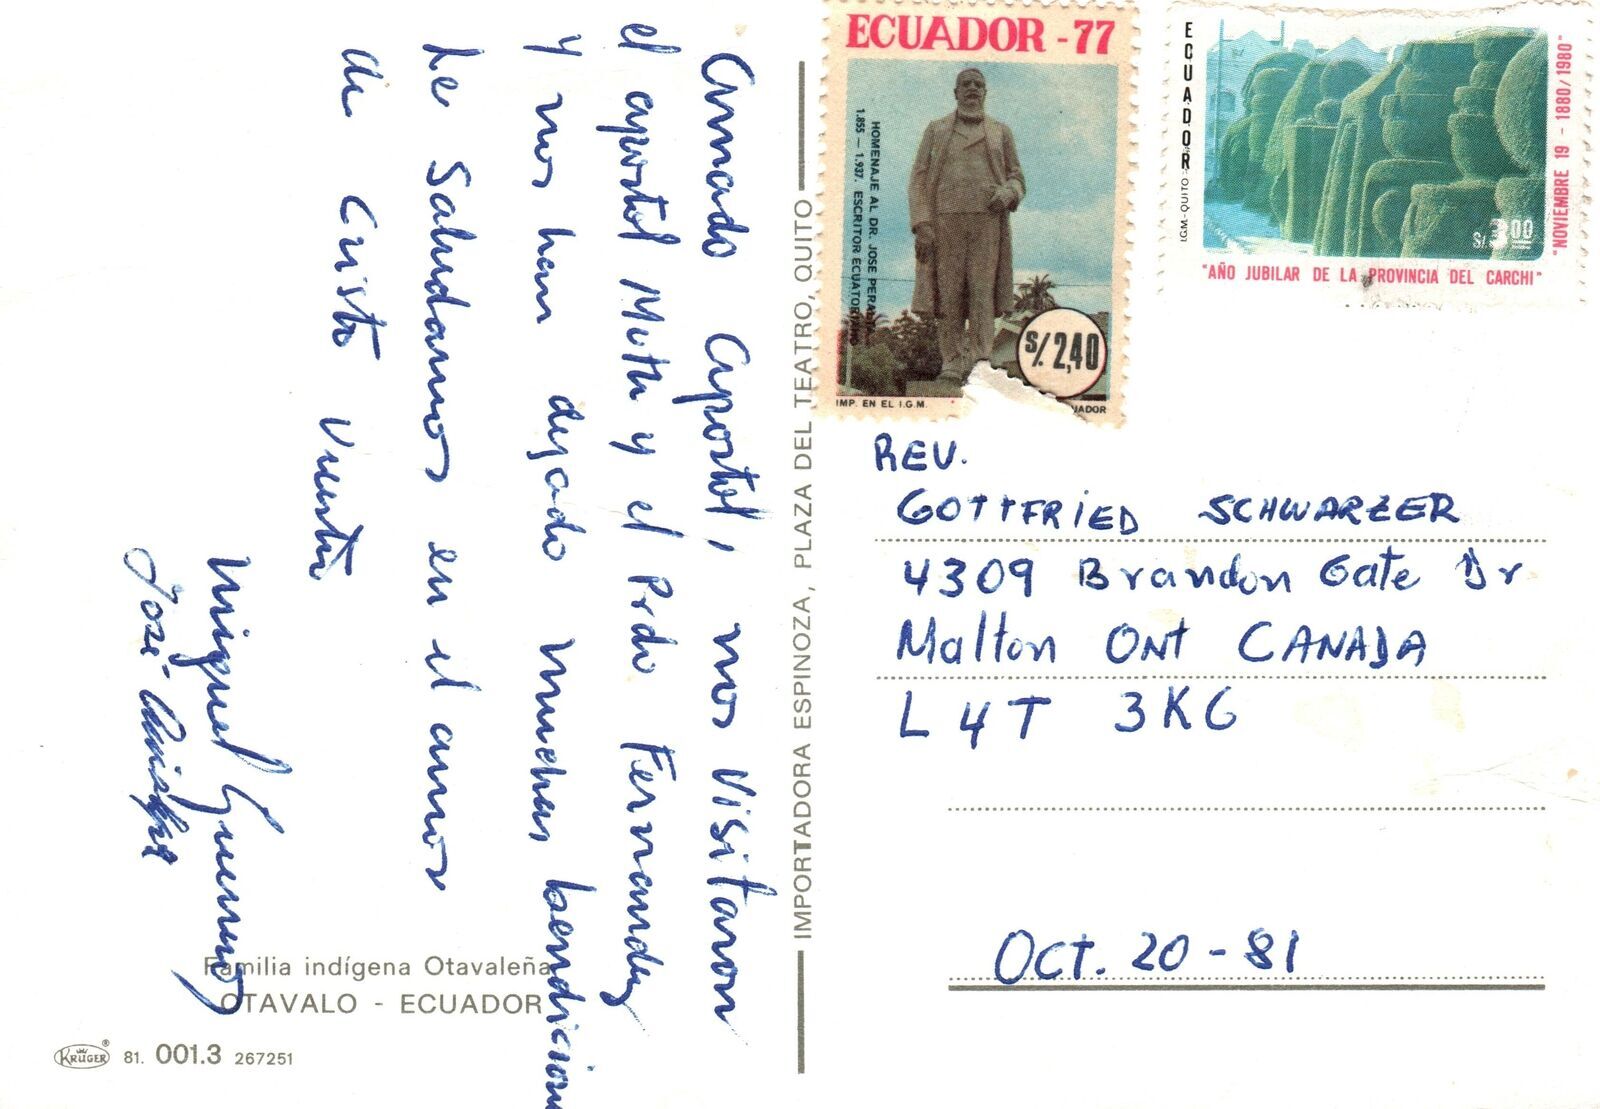 Amado Apostol, nos visitaron
el apostol Muth y el Prdo Fernandez
y nos han dejado muchas bendicion
Le Saludamos en el amor
de Cristo Vuestro
Miguel Guerrero
José
Familia indígena Otavaleña
OTAVALO - ECUADOR
KRÜGER 81. 001.3 267251
IMPORTADORA ESPINOZA, PLAZA DEL TEATRO, QUITO
ECUADOR - 77
HOMENAJE AL DR. JOSE PERALTA
1.855 - 1.937. ESCRITOR ECUATORIANO
S/. 2,40
IMP. EN EL I.G.M.
UADOR
ECUADOR
I.G.M. - QUITO
S/. 3.00
"NOVIEMBRE 19 - 1880/1980"
"AÑO JUBILAR DE LA PROVINCIA DEL CARCHI"
REV.
GOTTFRIED SCHWARZER
4309 Brandon Gate Dr
Malton ONT CANADA
L4T 3K6
OCT. 20 - 81